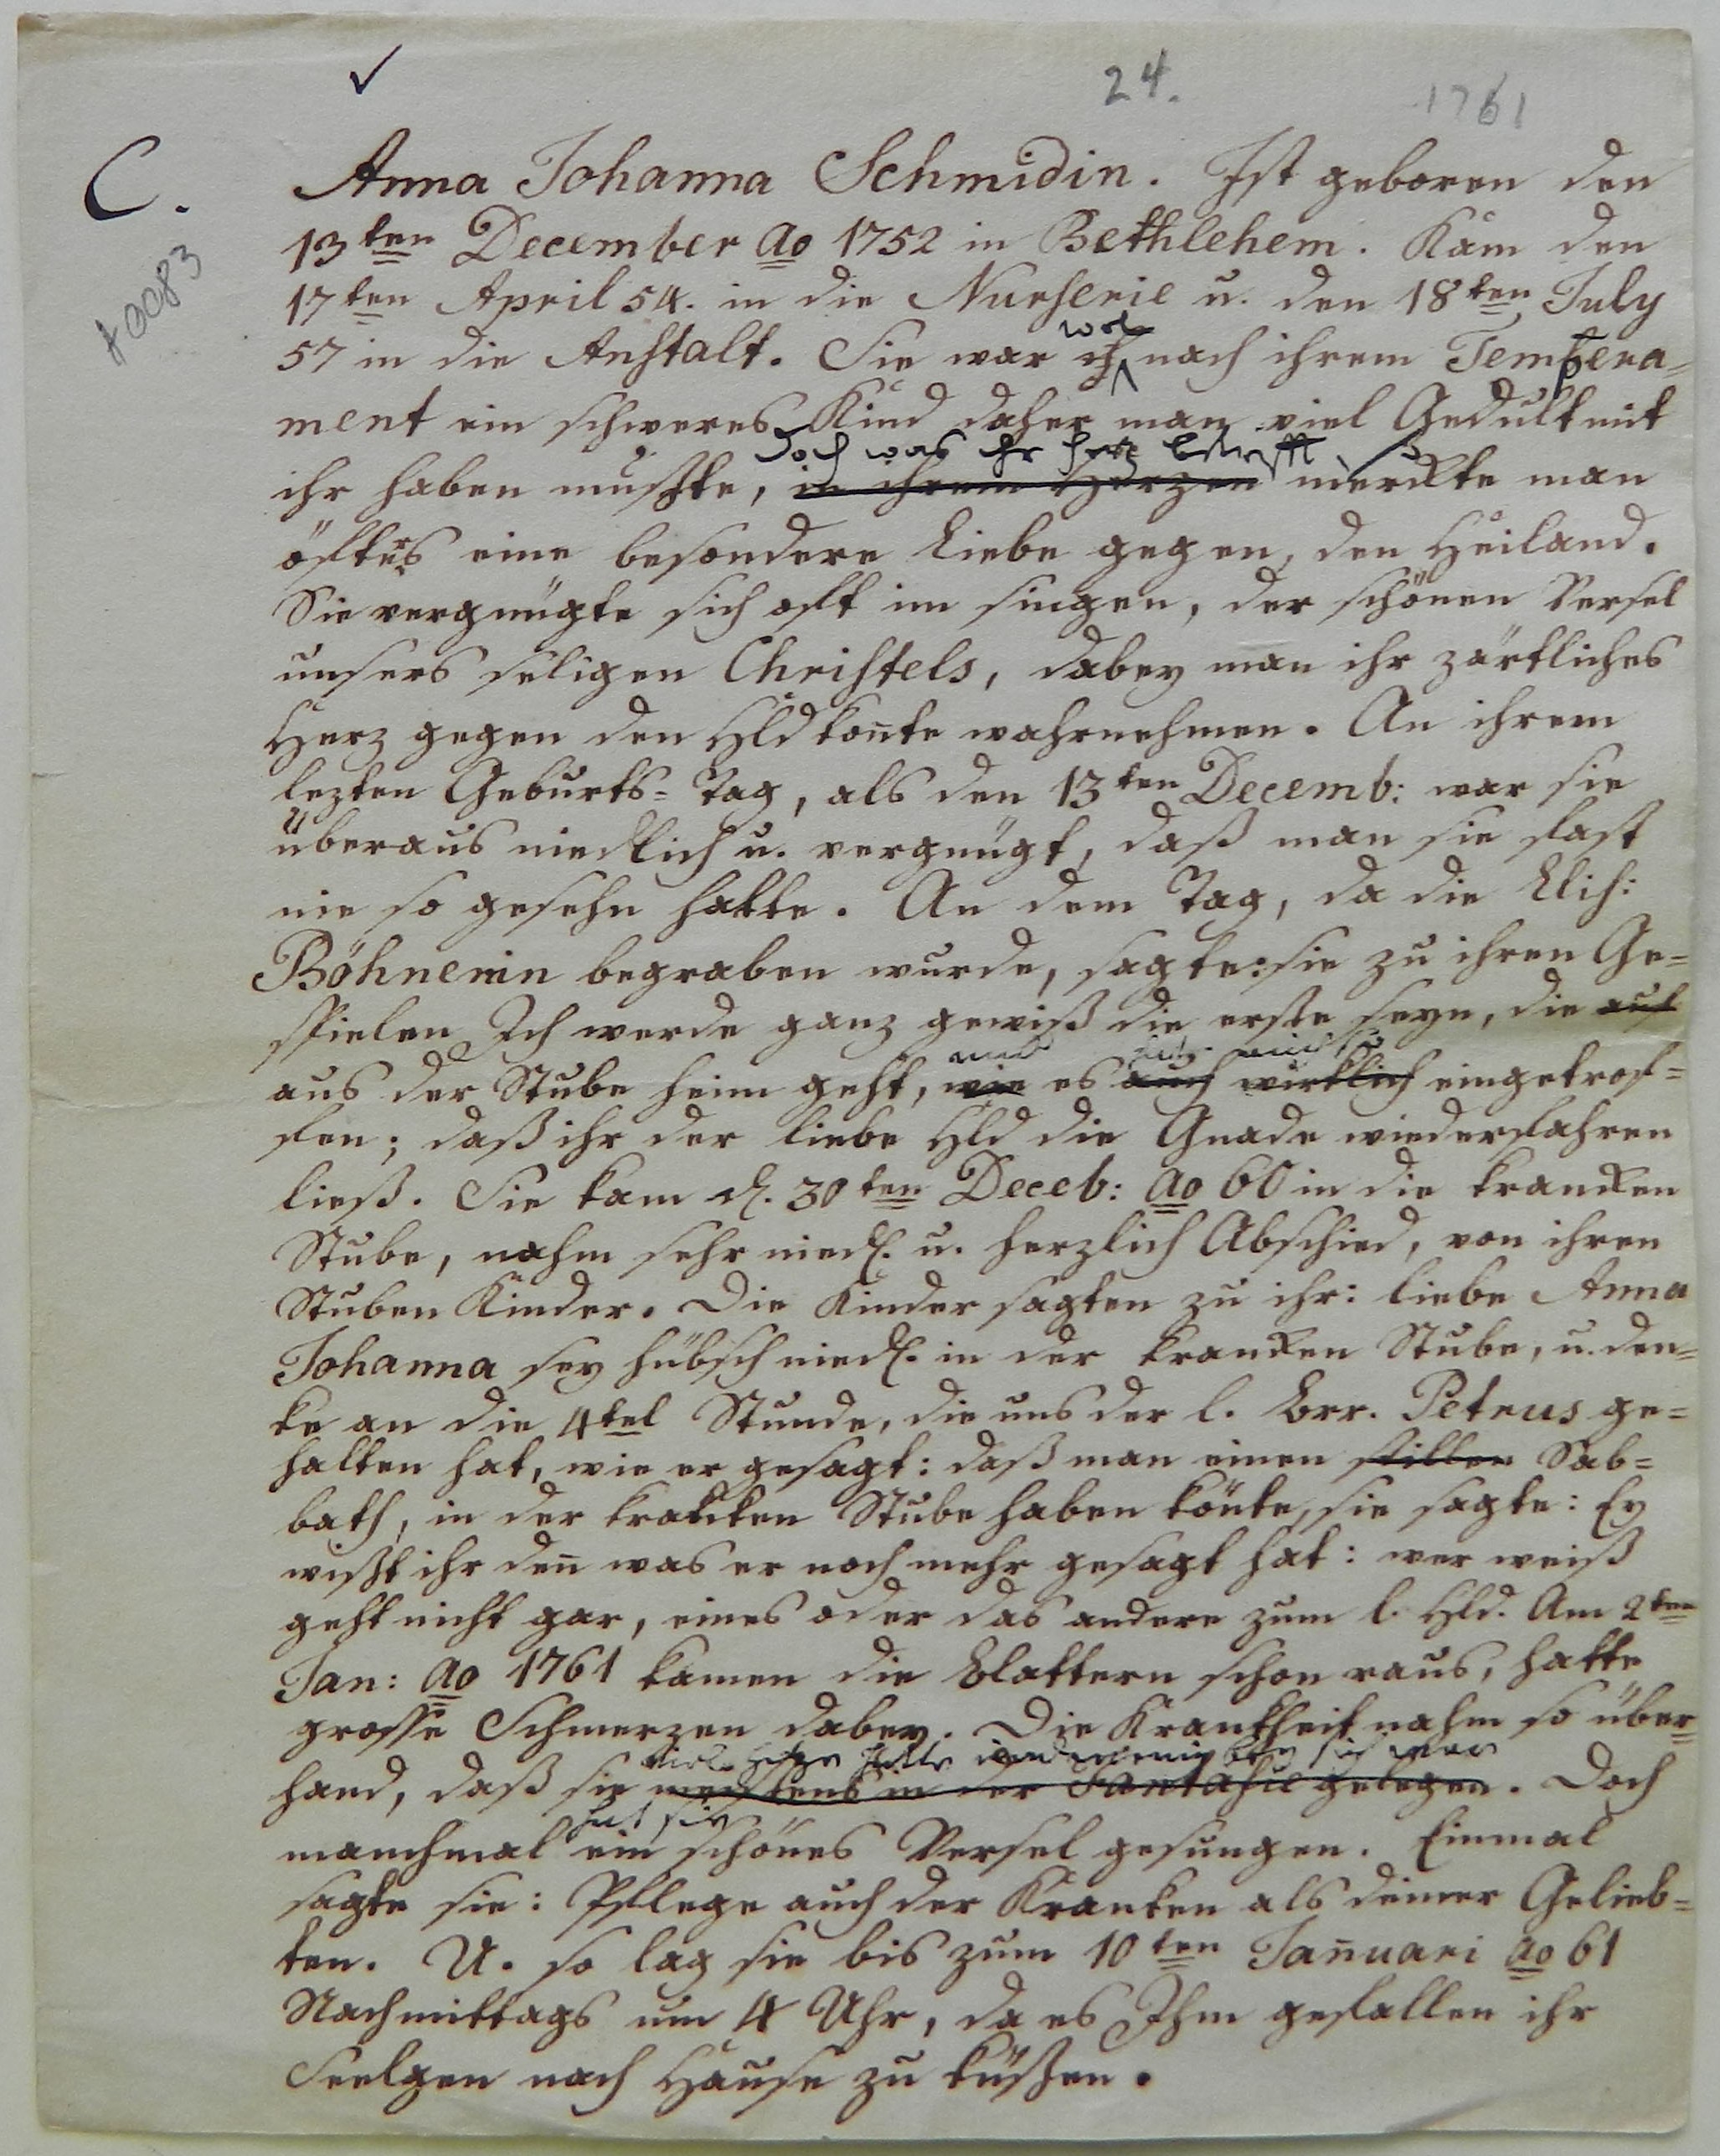 24.
1761
C.
Anna Johanna Schmidin. Ist geboren den
13ten December ao 1752 in Bethlehem. Kam den
17ten April 54. in die Nurserie u. den 18ten July
57 in die Anstalt. Sie war wol nach ihrem Tempera-
ment ein schweres Kind daher man viel Gedult mit
doch was ihr Herz betrifft,
ihr haben mußte, in ihrem Herzen merckte man
öfters eine besondere Liebe gegen, den Heiland.
Sie vergnügte sich oft im singen, der schönen Versel
unsers seligen Christels, dabey man ihr zärtliches
Herz gegen den Hld kon̄te wahrnehmen. An ihrem
lezten Geburts-Tag, als den 13ten Decemb: war sie
überaus niedlich u. vergnügt, daß man sie fast
nie so gesehn hatte. An dem Tag, da die Elis:
Böhnerin begraben wurde, sagte: sie zu ihren Ge-
spielen Ich werde ganz gewiß die erste seyn, die auf
aus der Stube heim geht, wie es auch wirklich eingetrof-
fen; daß ihr der liebe Hld die Gnade wiederfahren
ließ. Sie kam d. 30ten Deceb: ao 60 in die krancken
Stube, nahm sehr niedl. u. herzlich Abschied, von ihren
Stuben Kinder. Die Kinder sagten zu ihr: liebe Anna
Johanna sey hübsch niedl. in der krancken Stube, u. den-
ke an die 4tel Stunde, die uns der l. Brr. Petrus ge-
halten hat, wie er gesagt: daß man einen stillen Sab-
bath, in der krancken Stube haben könte, sie sagte: Ey
wißt ihr den̄ was er noch mehr gesagt hat: wer weiß
geht nicht gar, eines oder das andere zum l. Hld. Am 2ten
Jan: ao 1761 kamen die Blattern schon raus, hatte
grosse Schmerzen dabey. Die Krankheit nahm so über-
viele Hitze hatte und wenig bey sich war
hand, daß sie meistens in der Fantasie gelegen. Doch
hat sie
manchmal ein schönes Versel gesungen. Einmal
sagte sie: Pflege auch der Kranken als deiner Gelieb-
ten. U. so lag sie bis zum 10ten Jan̄uari ao 61
Nachmittags um 4 Uhr, da es Ihm gefallen ihr
Seelgen nach Hause zu küßen.